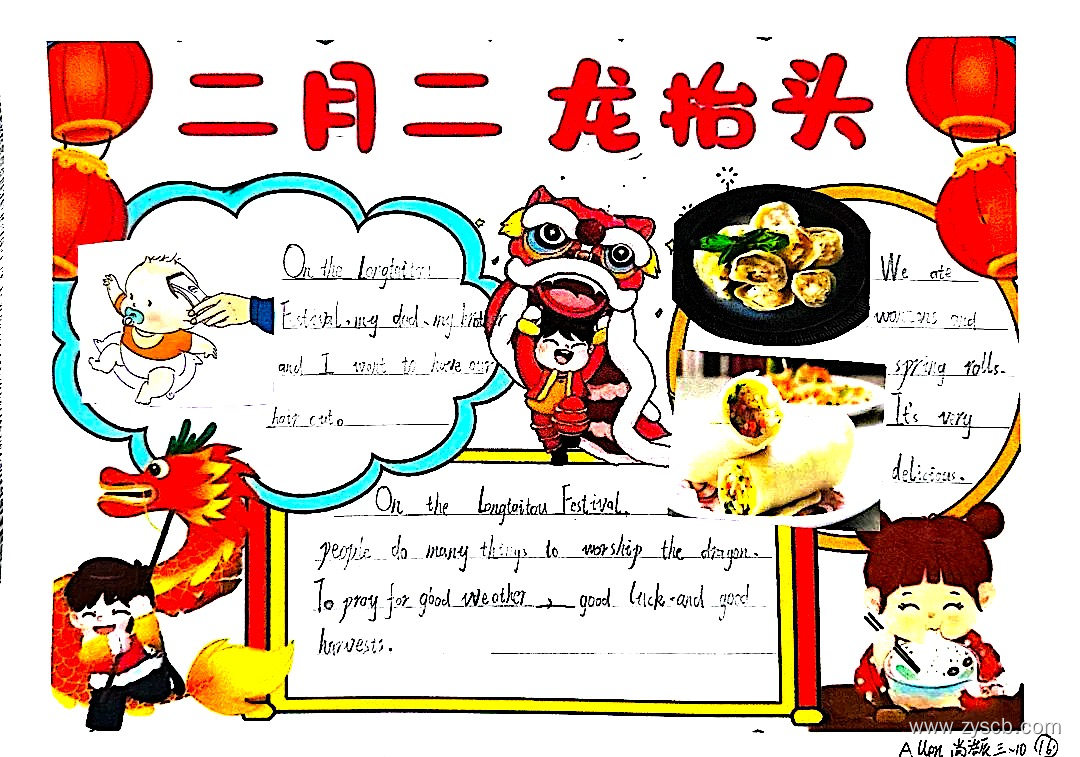 二月二 龙抬头
On the Longtaitou
Festival, my dad, my brother
and I want to have our
hair cut。
We ate
wontons and
spring rolls.
It's very
delicious.
On the Longtaitou Festival,
people do many things to worship the dragon.
To pray for good weather, good luck and good
harvests.
www.zyscb.com
Allen 尚 三-10 16